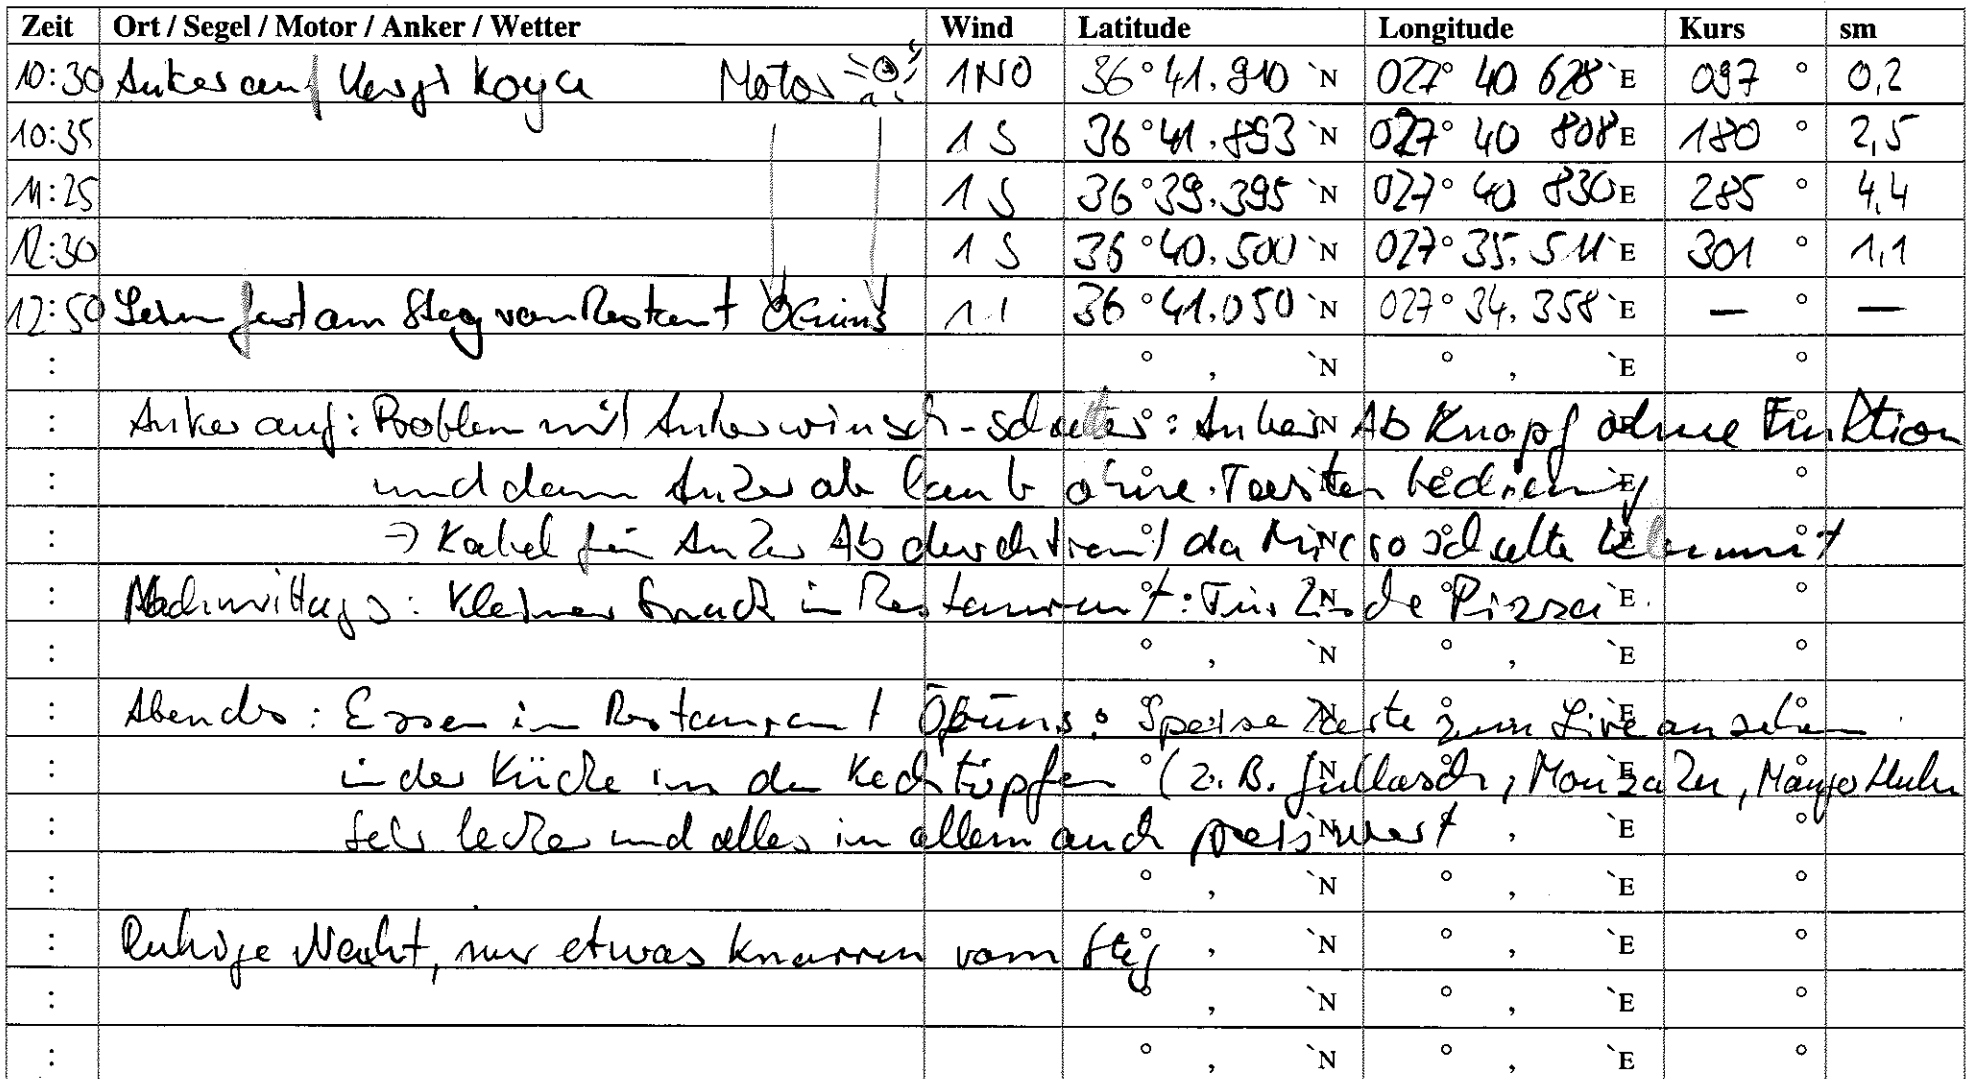 Zeit Ort / Segel / Motor / Anker / Wetter Wind Latitude Longitude Kurs sm
10:30 Anker auf Koyu Motor 1 NO 36° 41,910 `N 027° 40 628 `E 097 ° 0,2
10:35 1 S 36° 41,893 `N 027° 40 808 `E 180 ° 2,5
11:25 1 S 36° 39,395 `N 027° 40 830 `E 285 ° 4,4
12:30 1 S 36° 40,500 `N 027° 35,511 `E 301 ° 1,1
12:50 fest am Steg vom 36° 41,050 `N 027° 34,358 `E — ° —
: ° , `N ° , `E °
: Anker auf: Problem mit Ankerwinsch-schalter: Anker Ab Knopf ohne Funktion
: und dann Anker ab ohne Tasten
: → Kabel für Anker Ab da Microschalter
: Nachmittags: Kleiner Snack im Restaurant: Pizza
: ° , `N ° , `E °
: Abends: Essen im Restaurant Ögüns: Speisekarte zum Live ansehen
: in der Küche in den Kochtöpfen (z.B. Gullasch, Huhn
: sehr lecker und alles in allem auch preiswert
: ° , `N ° , `E °
: Ruhige Nacht, nur etwas Knarren vom Steg
: ° , `N ° , `E °
: ° , `N ° , `E °